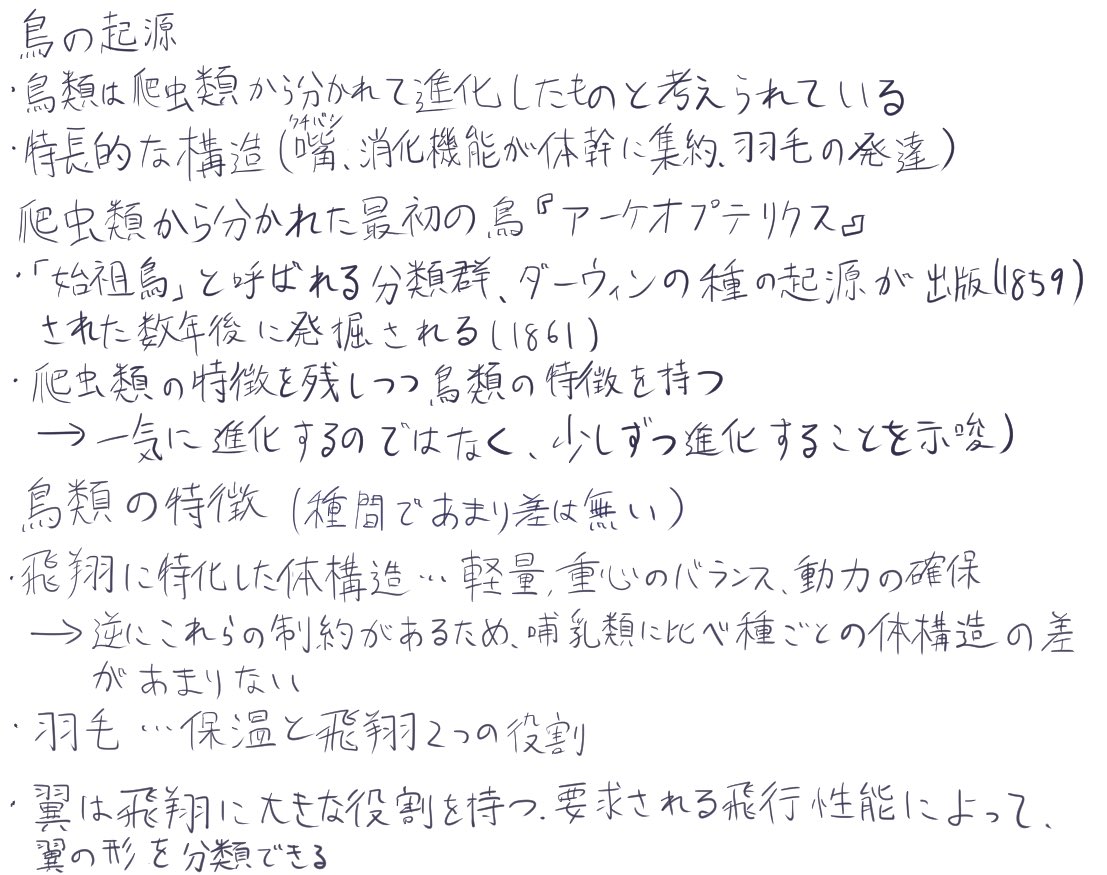 鳥の起源
・鳥類は爬虫類から分かれて進化したものと考えられている
クチバシ
・特長的な構造(嘴、消化機能が体幹に集約、羽毛の発達)
爬虫類から分かれた最初の鳥『アーケオプテリクス』
・「始祖鳥」と呼ばれる分類群、ダーウィンの種の起源が出版(1859)
された数年後に発掘される(1861)
・爬虫類の特徴を残しつつ鳥類の特徴を持つ
→一気に進化するのではなく、少しずつ進化することを示唆)
鳥類の特徴(種間であまり差は無い)
・飛翔に特化した体構造…軽量,重心のバランス、動力の確保
→逆にこれらの制約があるため、哺乳類に比べ種ごとの体構造の差
があまりない
・羽毛…保温と飛翔2つの役割
・翼は飛翔に大きな役割を持つ.要求される飛行性能によって、
翼の形を分類できる